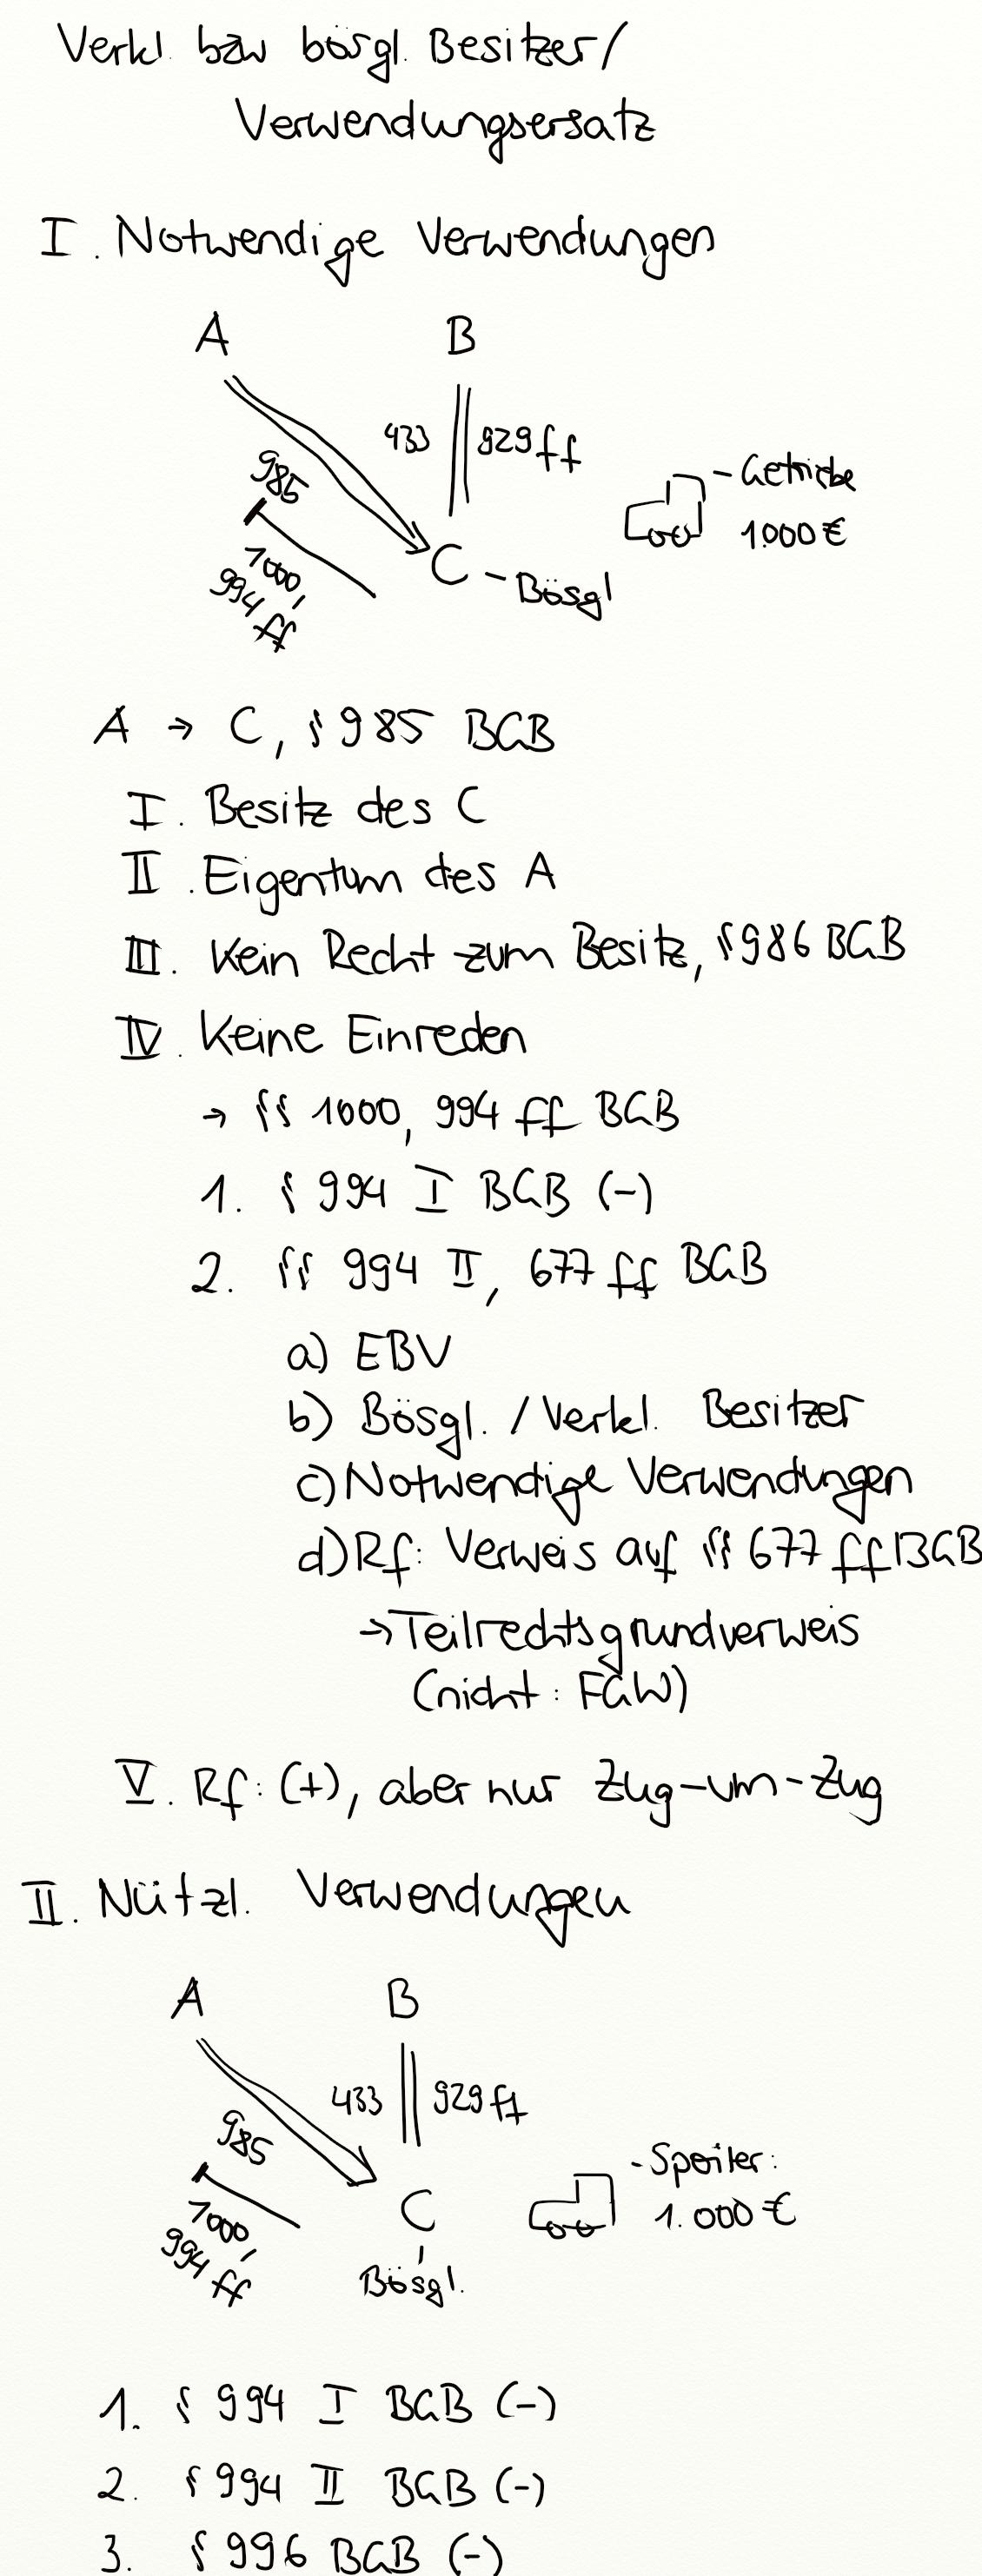 Verkl. bzw bösgl. Besitzer/
Verwendungsersatz
I. Notwendige Verwendungen
A B
433 929 ff
985
- Getriebe
1000 €
1000,
994 ff
C - Bösgl
A → C, § 985 BGB
I. Besitz des C
II. Eigentum des A
III. Kein Recht zum Besitz, § 986 BGB
IV. Keine Einreden
→ §§ 1000, 994 ff BGB
1. § 994 I BGB (-)
2. §§ 994 II, 677 ff BGB
a) EBV
b) Bösgl. / Verkl. Besitzer
c) Notwendige Verwendungen
d) Rf: Verweis auf §§ 677 ff BGB
→ Teilrechtsgrundverweis
(nicht: FGW)
V. Rf: (+), aber nur Zug-um-Zug
II. Nützl. Verwendungen
A B
433 929 ff
985
- Spoiler:
1.000 €
1000,
994 ff
C
Bösgl.
1. § 994 I BGB (-)
2. § 994 II BGB (-)
3. § 996 BGB (-)